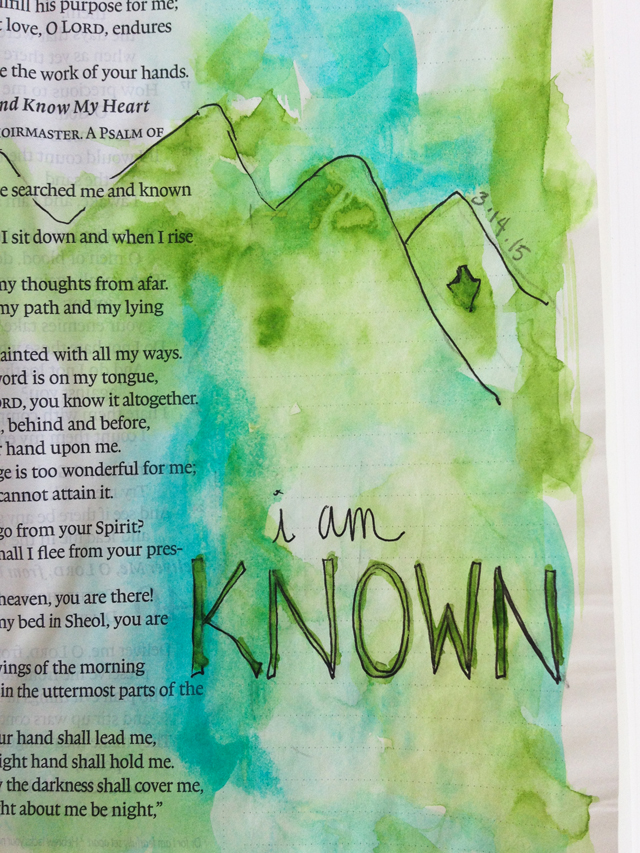 his purpose for me;
love, O LORD, endures
the work of your hands.
Know My Heart
A PSALM OF
searched me and known
I sit down and when I rise
my thoughts from afar.
my path and my lying
with all my ways.
is on my tongue,
you know it altogether.
behind and before,
hand upon me.
is too wonderful for me;
cannot attain it.
go from your Spirit?
I flee from your pres-
heaven, you are there!
my bed in Sheol, you are
of the morning
in the uttermost parts of the
hand shall lead me,
hand shall hold me.
the darkness shall cover me,
about me be night,”
3·14·15
i am
KNOWN